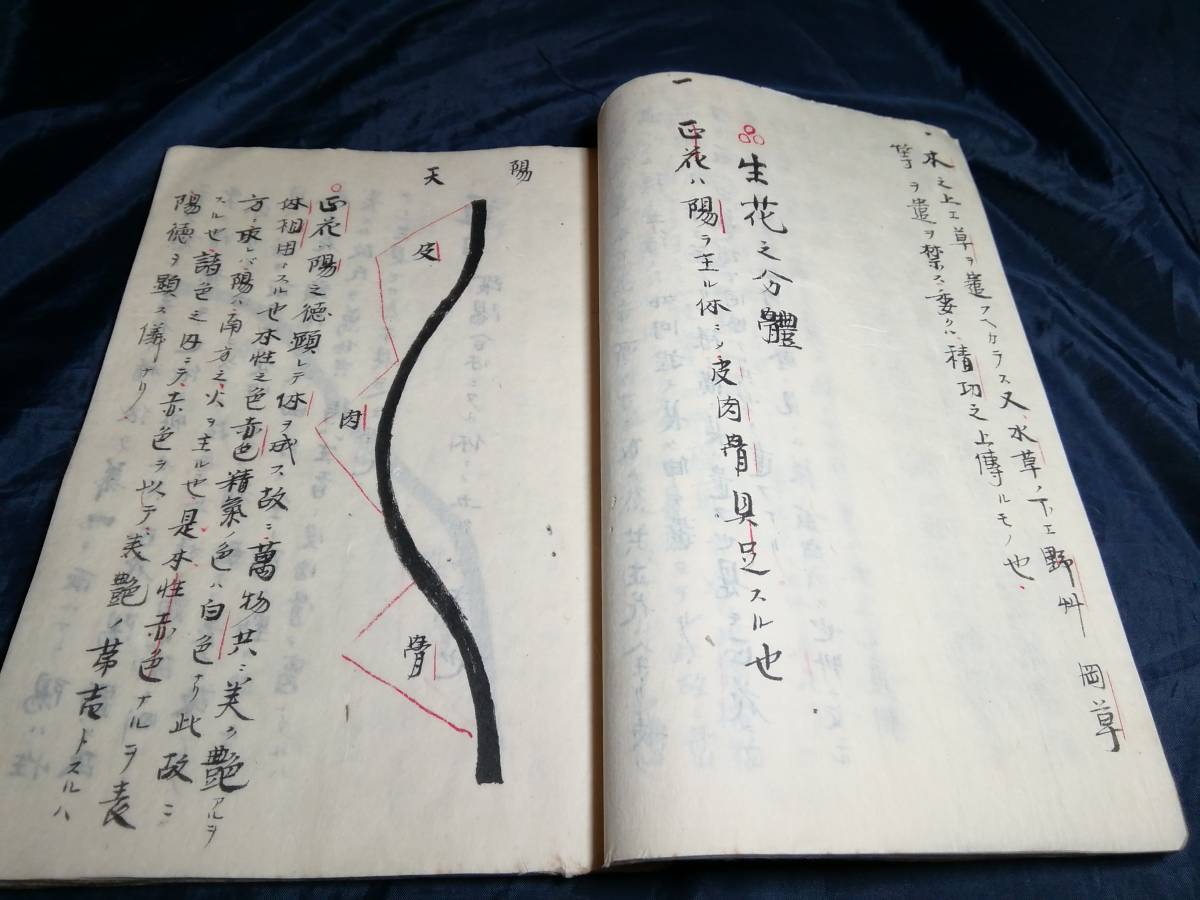 木之上エ草ヲ遣フヘカラス又水草ノ下エ野艸 岡草
等ヲ遣ヲ禁ス委クハ積功之上傳ルモノ也
生花之分體
一 正花ハ陽ヲ主ル体ニシ皮肉骨具足スル也
陽
天
皮
肉
骨
正花ハ陽之徳顕レテ体ヲ成ス故ニ萬物共ニ美ク艶アルヲ
体相用トスル也本性之色赤色精氣ノ色ハ白色ナリ此故ニ
方ニ取レバ陽ハ南方之火ヲ主ル也是本性赤色ナルヲ表
スル也諸色之内ニテ赤色ヲ以テ美艶ノ第吉トスルハ
陽徳ヲ顕ス儀ナリ